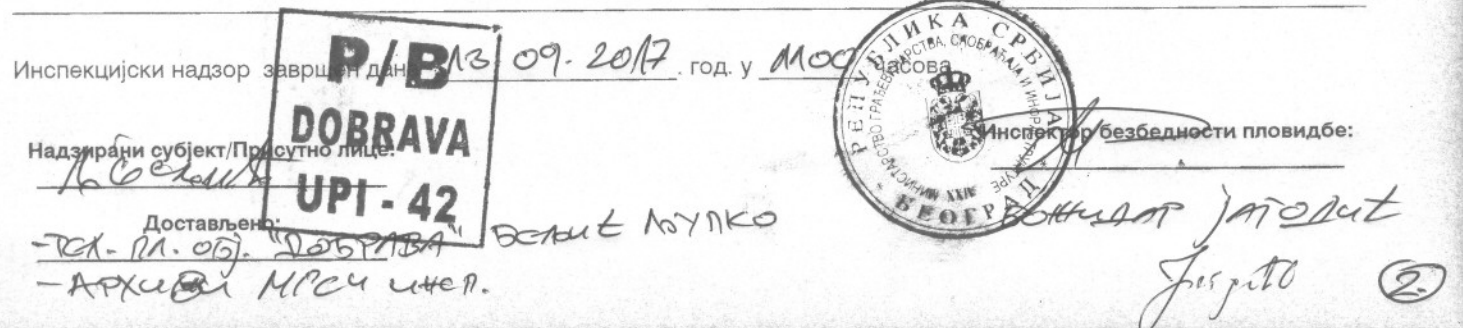 Инспекцијски надзор завршен дана 13 09. 2017. год. у 1100 часова
P/B
DOBRAVA
UPI - 42
РЕПУБЛИКА СРБИЈА
МИНИСТАРСТВО ГРАЂЕВИНАРСТВА, САОБРАЋАЈА И ИНФРАСТРУКТУРЕ
XXIV
БЕОГРАД
Надзирани субјект/Присутно лице:
Инспектор безбедности пловидбе:
Достављено:
БЕЛИЋ ЉУПКО
БОЖИДАР ЈАГОДИЋ
-ТЕХ. ПЛ. ОБЈ. "ДОБРАВА"
- АРХИВИ МГСИ ИНСП.
2.